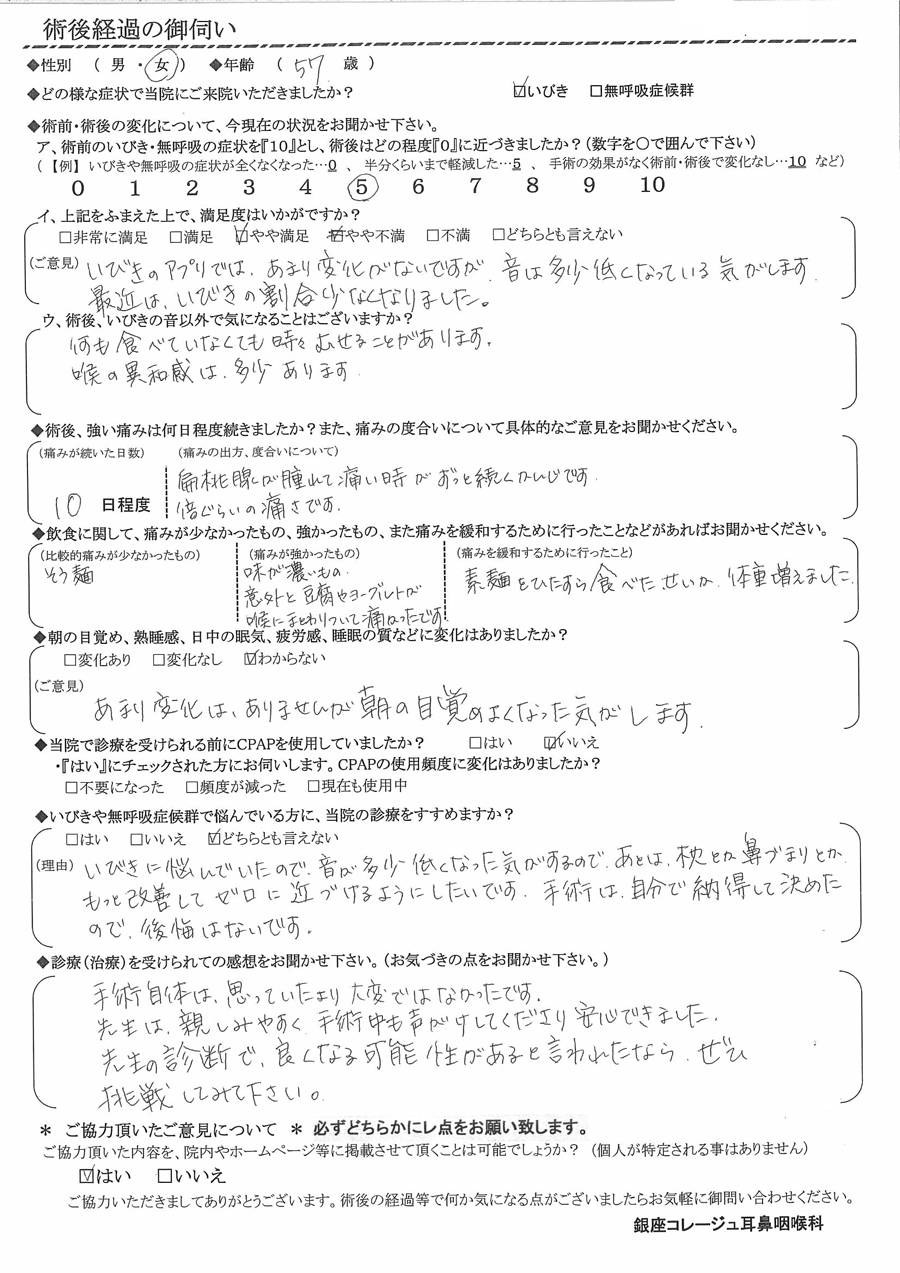 術後経過の御伺い
◆性別 （ 男 ・ 女 ） ◆年齢 （ 57 歳 ）
◆どの様な症状で当院にご来院いただきましたか？ ☑いびき □無呼吸症候群
◆術前・術後の変化について、今現在の状況をお聞かせ下さい。
ア、術前のいびき・無呼吸の症状を『10』とし、術後はどの程度『0』に近づきましたか？（数字を○で囲んで下さい）
（【例】いびきや無呼吸の症状が全くなくなった…0 、 半分くらいまで軽減した…5 、 手術の効果がなく術前・術後で変化なし…10 など）
0 1 2 3 4 5 6 7 8 9 10
イ、上記をふまえた上で、満足度はいかがですか？
□非常に満足 □満足 ☑やや満足 □やや不満 □不満 □どちらとも言えない
（ご意見） いびきのアプリでは、あまり変化がないですが、音は多少低くなっている気がします.
最近は、いびきの割合少なくなりました。
ウ、術後、いびきの音以外で気になることはございますか？
何も食べていなくても時々むせることがあります。
喉の異和感は、多少あります.
◆術後、強い痛みは何日程度続きましたか？また、痛みの度合いについて具体的なご意見をお聞かせください。
（痛みが続いた日数） （痛みの出方、度合いについて）
扁桃腺が腫れて痛い時がずっと続くかんじです.
10 日程度 倍ぐらいの痛さです.
◆飲食に関して、痛みが少なかったもの、強かったもの、また痛みを緩和するために行ったことなどがあればお聞かせください。
（比較的痛みが少なかったもの） （痛みが強かったもの） （痛みを緩和するために行ったこと）
そう麺 味が濃いもの. 素麺をひたすら食べた、せいか、体重増えました.
意外と豆腐やヨーグルトが
喉にまとわりついて痛かったです.
◆朝の目覚め、熟睡感、日中の眠気、疲労感、睡眠の質などに変化はありましたか？
□変化あり □変化なし ☑わからない
（ご意見）
あまり変化は、ありませんが朝の目覚めよくなった気がします.
◆当院で診療を受けられる前にCPAPを使用していましたか？ □はい ☑いいえ
・『はい』にチェックされた方にお伺いします。CPAPの使用頻度に変化はありましたか？
□不要になった □頻度が減った □現在も使用中
◆いびきや無呼吸症候群で悩んでいる方に、当院の診療をすすめますか？
□はい □いいえ ☑どちらとも言えない
（理由） いびきに悩んでいたので、音が多少低くなった気がするので、あとは、枕とか鼻づまりとか.
もっと改善してゼロに近づけるようにしたいです. 手術は、自分で納得して決めた
ので、後悔はないです。
◆診療（治療）を受けられての感想をお聞かせ下さい。（お気づきの点をお聞かせ下さい。）
手術自体は、思っていたより大変ではなかったです.
先生は、親しみやすく、手術中も声がけしてくださり安心できました.
先生の診断で、良くなる可能性があると言われたなら、ぜひ
挑戦してみて下さい。
＊ ご協力頂いたご意見について ＊ 必ずどちらかにレ点をお願い致します。
ご協力頂いた内容を、院内やホームページ等に掲載させて頂くことは可能でしょうか？（個人が特定される事はありません）
☑はい □いいえ
ご協力いただきましてありがとうございます。術後の経過等で何か気になる点がございましたらお気軽に御問い合わせください。
銀座コレージュ耳鼻咽喉科